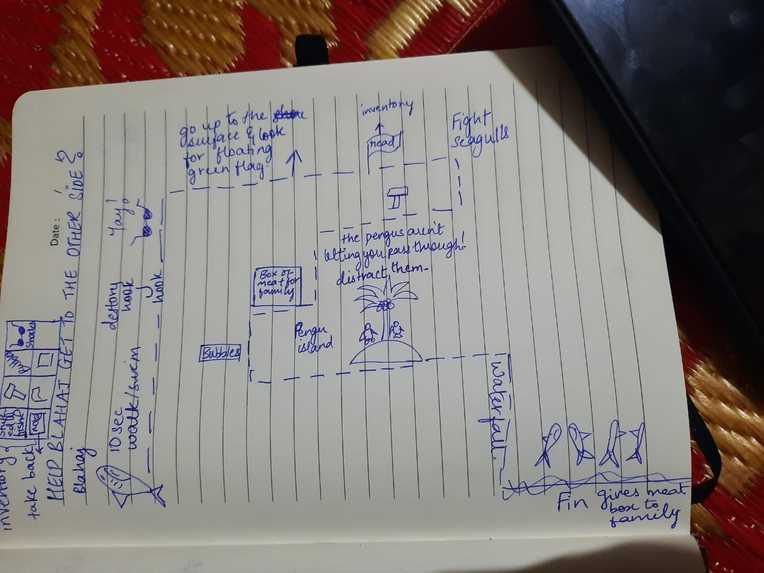 Date :
inventory
take back
HELP BLAHAJ GET TO THE OTHER SIDE?!
Blahaj
10 sec
walk/swim
destory
hook
yay!
hook
go up to the
surface & look
for floating
green flag
inventory
head
Fight
seagulls
the pengus aren't
letting you pass through!
distract them-
Box of
meat for
family
Bubbles
Pengu
island
Waterfall
Fin gives meat
box to
family